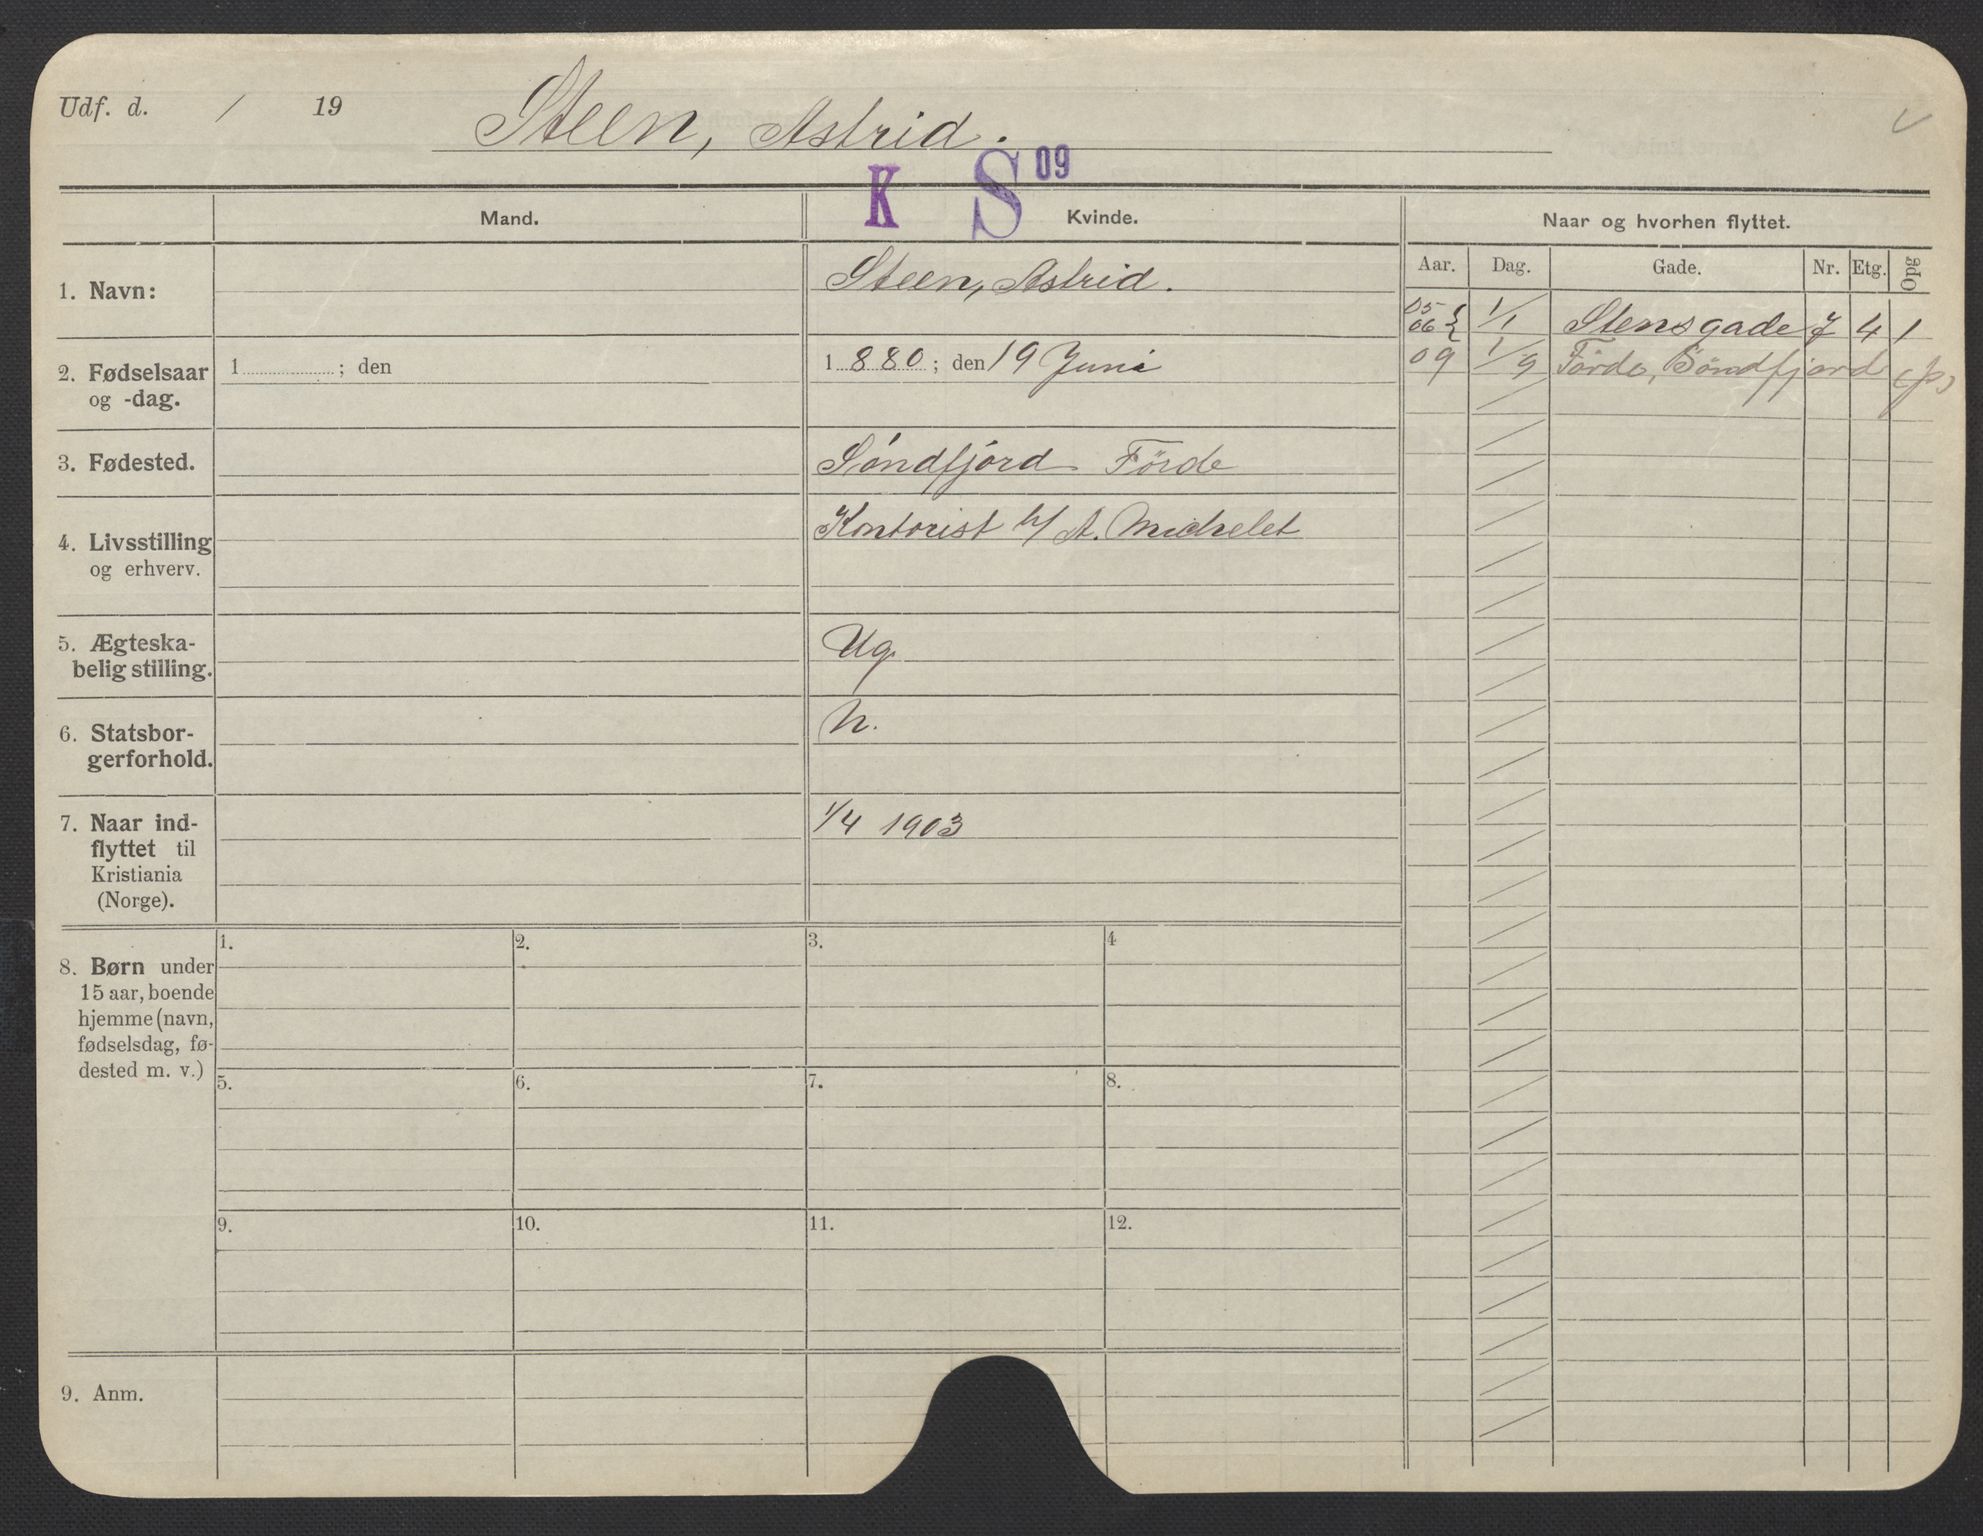 Udf. d. / 19 Steen, Astrid.
K S 09
Mand. Kvinde. Naar og hvorhen flyttet.
Aar. Dag. Gade. Nr. Etg. Opg
1. Navn: Steen, Astrid.
05
06 } 1/1 Stensgade 7 4 1
09 1/9 Førde, Søndfjord
2. Fødselsaar
og -dag.
1 ; den
1 880 ; den 19 Juni
3. Fødested. Søndfjord Förde
4. Livsstilling
og erhverv.
Kontorist h/ A. Michelet
5. Ægteska-
belig stilling.
Ug.
6. Statsbor-
gerforhold.
N.
7. Naar ind-
flyttet til
Kristiania
(Norge).
1/4 1903
8. Børn under
15 aar, boende
hjemme (navn,
fødselsdag, fø-
dested m. v.)
1. 2. 3. 4
5. 6. 7. 8.
9. 10. 11. 12.
9. Anm.